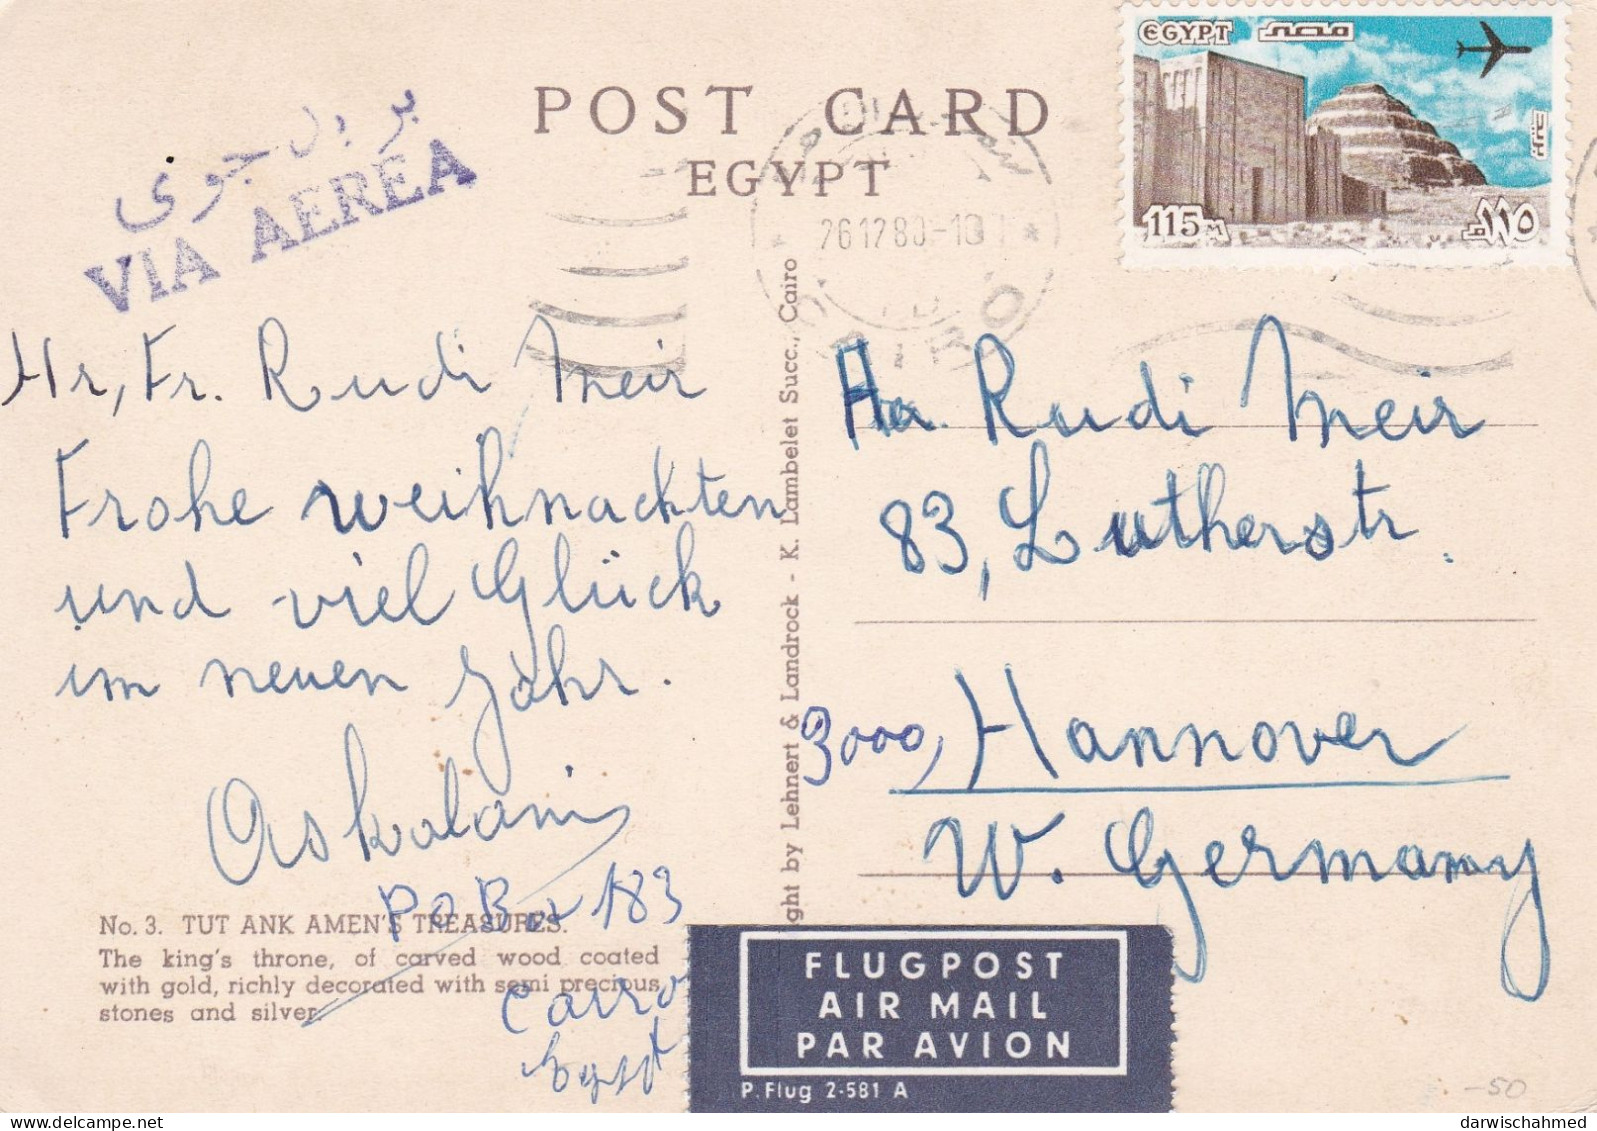 POST CARD
EGYPT
EGYPT مصر
115 M ١١٥
جوى
VIA AEREA
26 12 80-10
Hr, Fr. Rudi Meir
Frohe weihnachten
und viel Glück
im neuen Jahr.
Askalani
P O Box 183
Cairo
Egypt
No. 3. TUT ANK AMEN'S TREASURES.
The king's throne, of carved wood coated
with gold, richly decorated with semi precious
stones and silver
ght by Lehnert & Landrock - K. Lambelet Succ., Cairo
Rudi Meir
83, Lutherstr.
3000, Hannover
W. Germany
FLUGPOST
AIR MAIL
PAR AVION
P. Flug 2-581 A
-50
darwischahmed